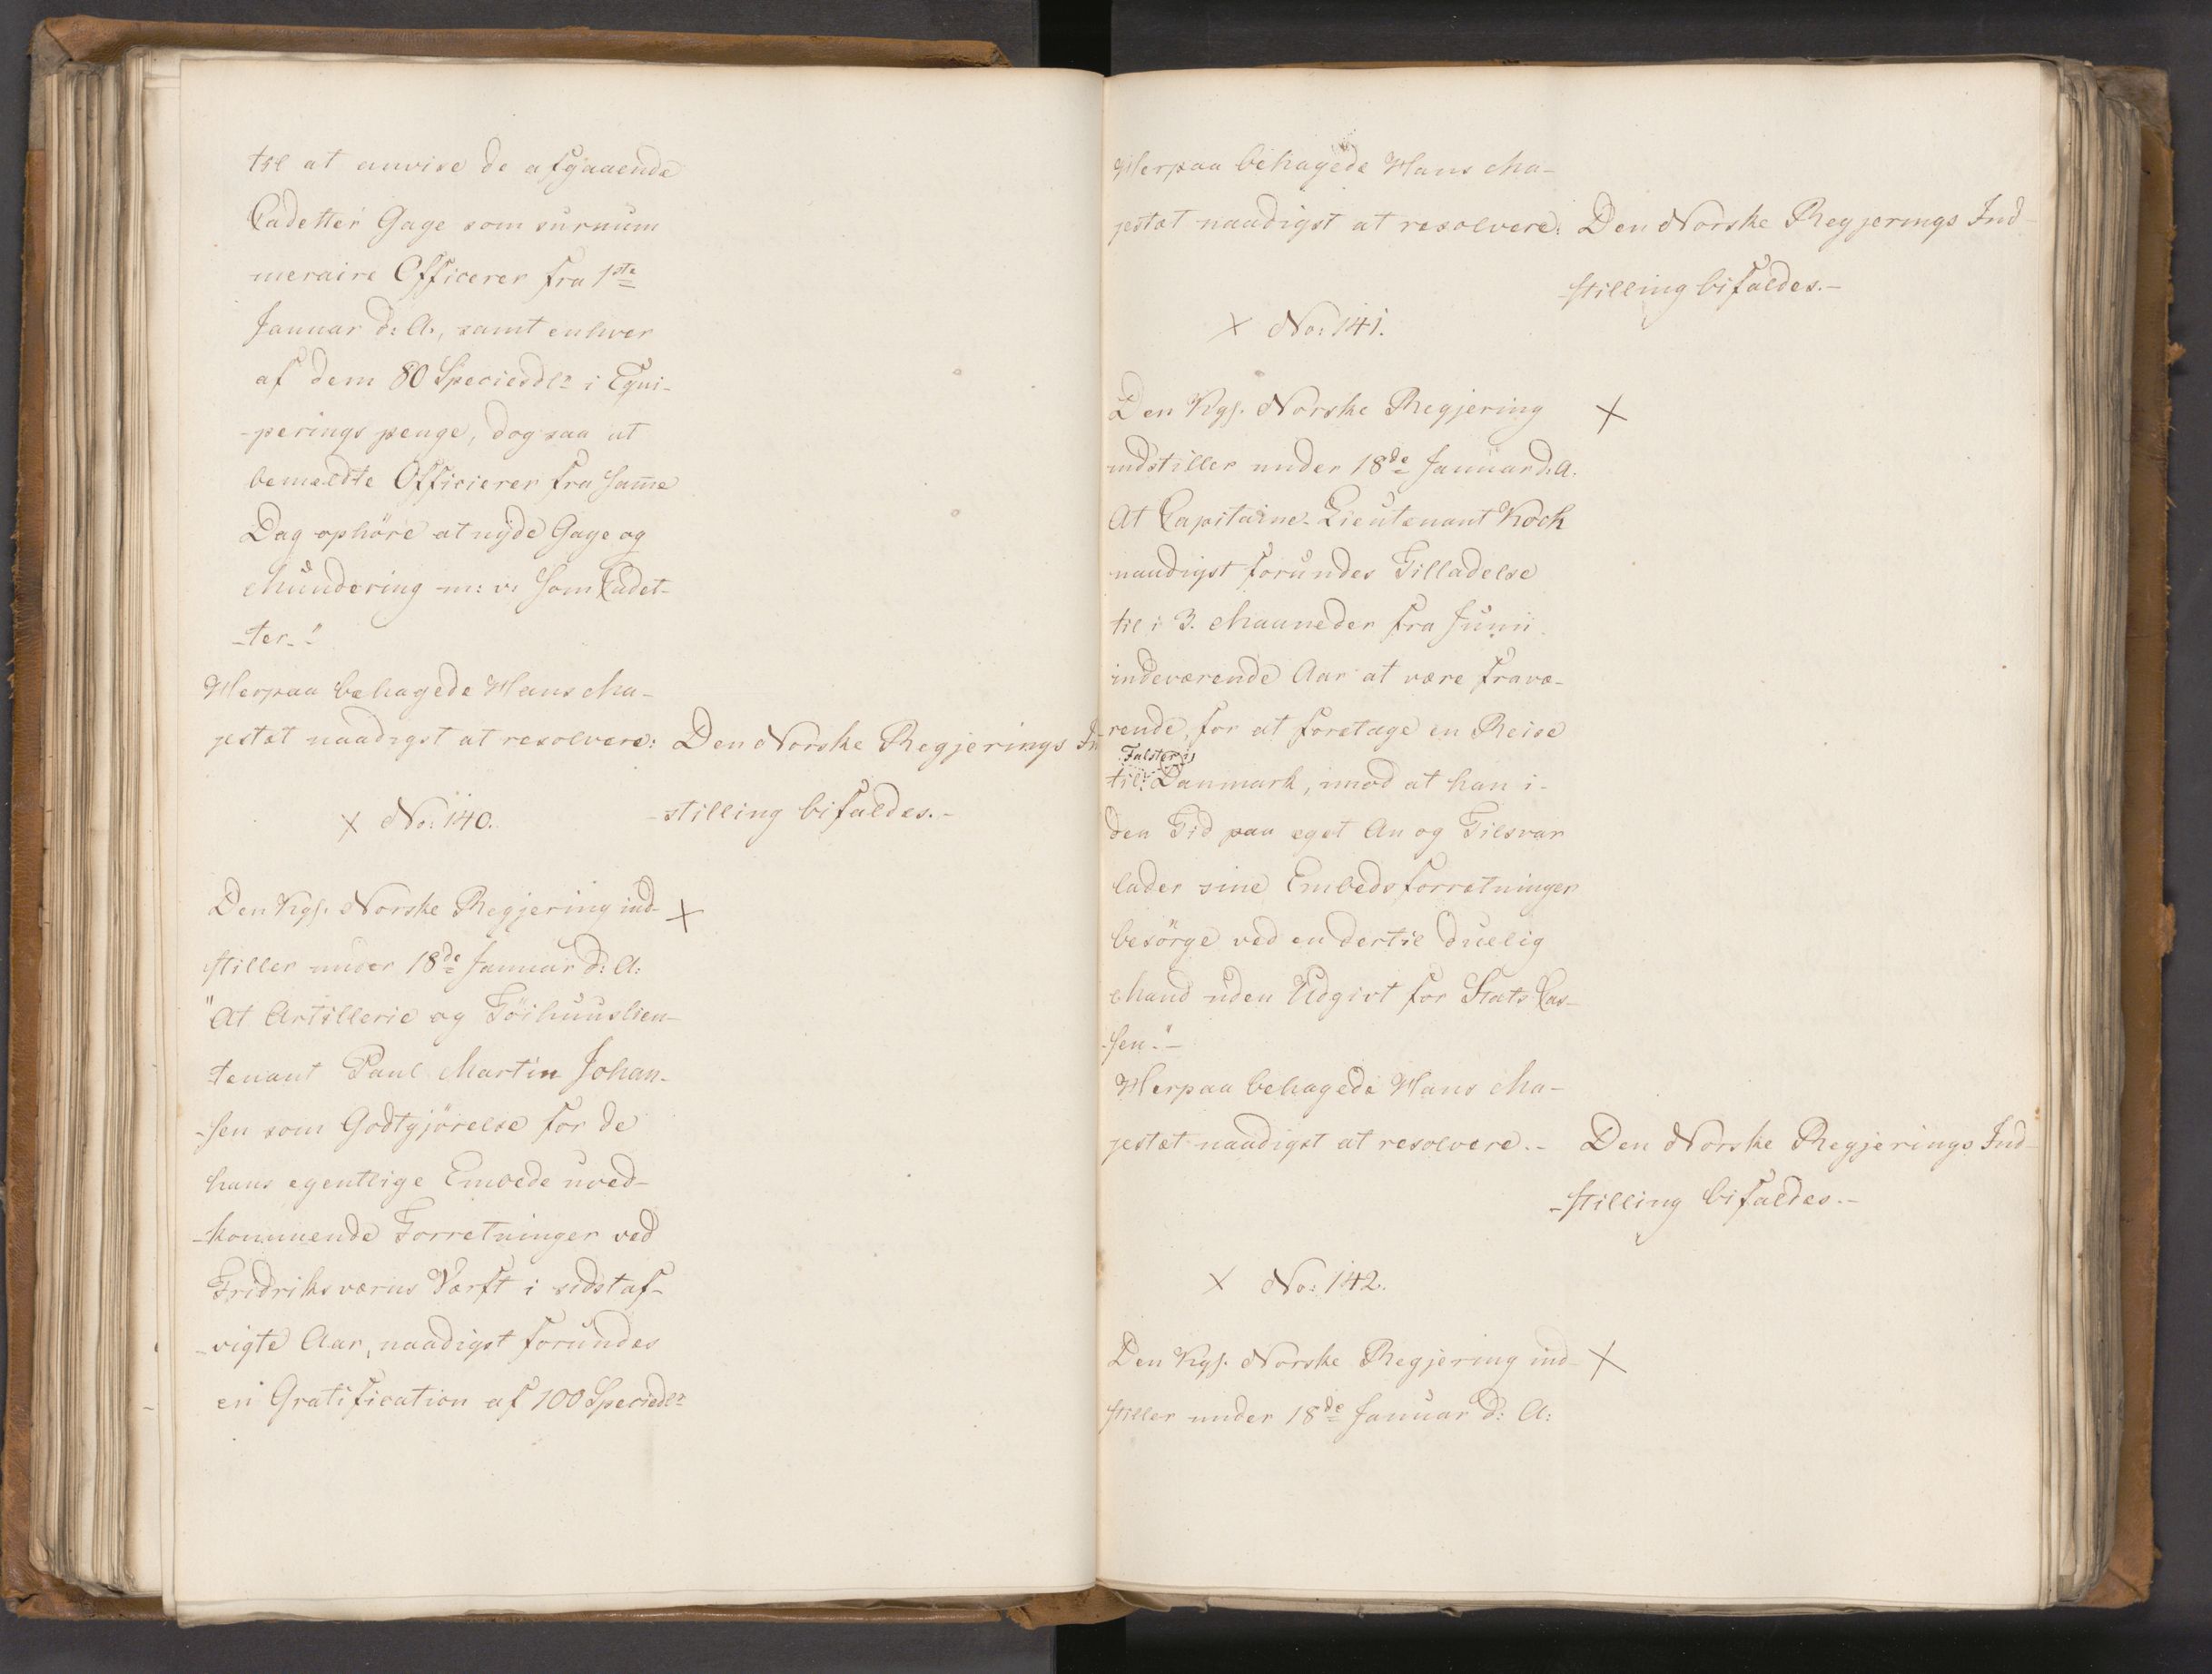 til at anvise de afgaaende
Cadetter Gage som surnum
meraire Officerer fra 1ste
Januar d: A., samt enhver
af dem 80 Speciesdlr i Equi-
-perings penge, dog saa at
bemeldte Officierer fra samme
Dag ophöre at nyde Gage og
Mundering m: v. som Cadet-
-ter."
Herpaa behagede Hans Ma-
jestæt naadigst at resolvere: Den Norske Regjerings In
-stilling bifaldes.-
x No: 140.
Den Kgs. Norske Regjering ind- x
stiller under 18de Januar d: A:
"At Artillerie og Töihuuslieu-
-tenant Paul Martin Johan-
-sen som Godtgjörelse for de
hans egentlige Embede uved-
-kommende Forretninger ved
Fridriksværns Værft i sidstaf-
-vigte Aar, naadigst forundes
en Gratification af 100 Speciedlr
Herpaa behagede Hans Ma-
jestæt naadigst at resolvere: Den Norske Regjerings Ind-
-stilling bifaldes.-
x No: 141.
Den Kgs. Norske Regjering x
indstiller under 18de Januar d: A.
At Capitaine-Lieutenant Koch
naadigst forundes Tilladelse
til i 3. Maaneder fra Junii
indeværende Aar at være fravæ-
rende, for at foretage en Reise
Falster i
til Danmark, imod at han i-
den Tid paa eget An og Tilsvar
lader sine Embedsforretninger
besörge ved en dertil duelig
Mand uden Udgivt for Stats Cas-
-sen."-
Herpaa behagede Hans Ma-
jestæt naadigst at resolvere.- Den Norske Regjerings Ind-
-stilling bifaldes.-
x No: 142.
Den Kgs. Norske Regjering ind- x
stiller under 18de Januar d: A: